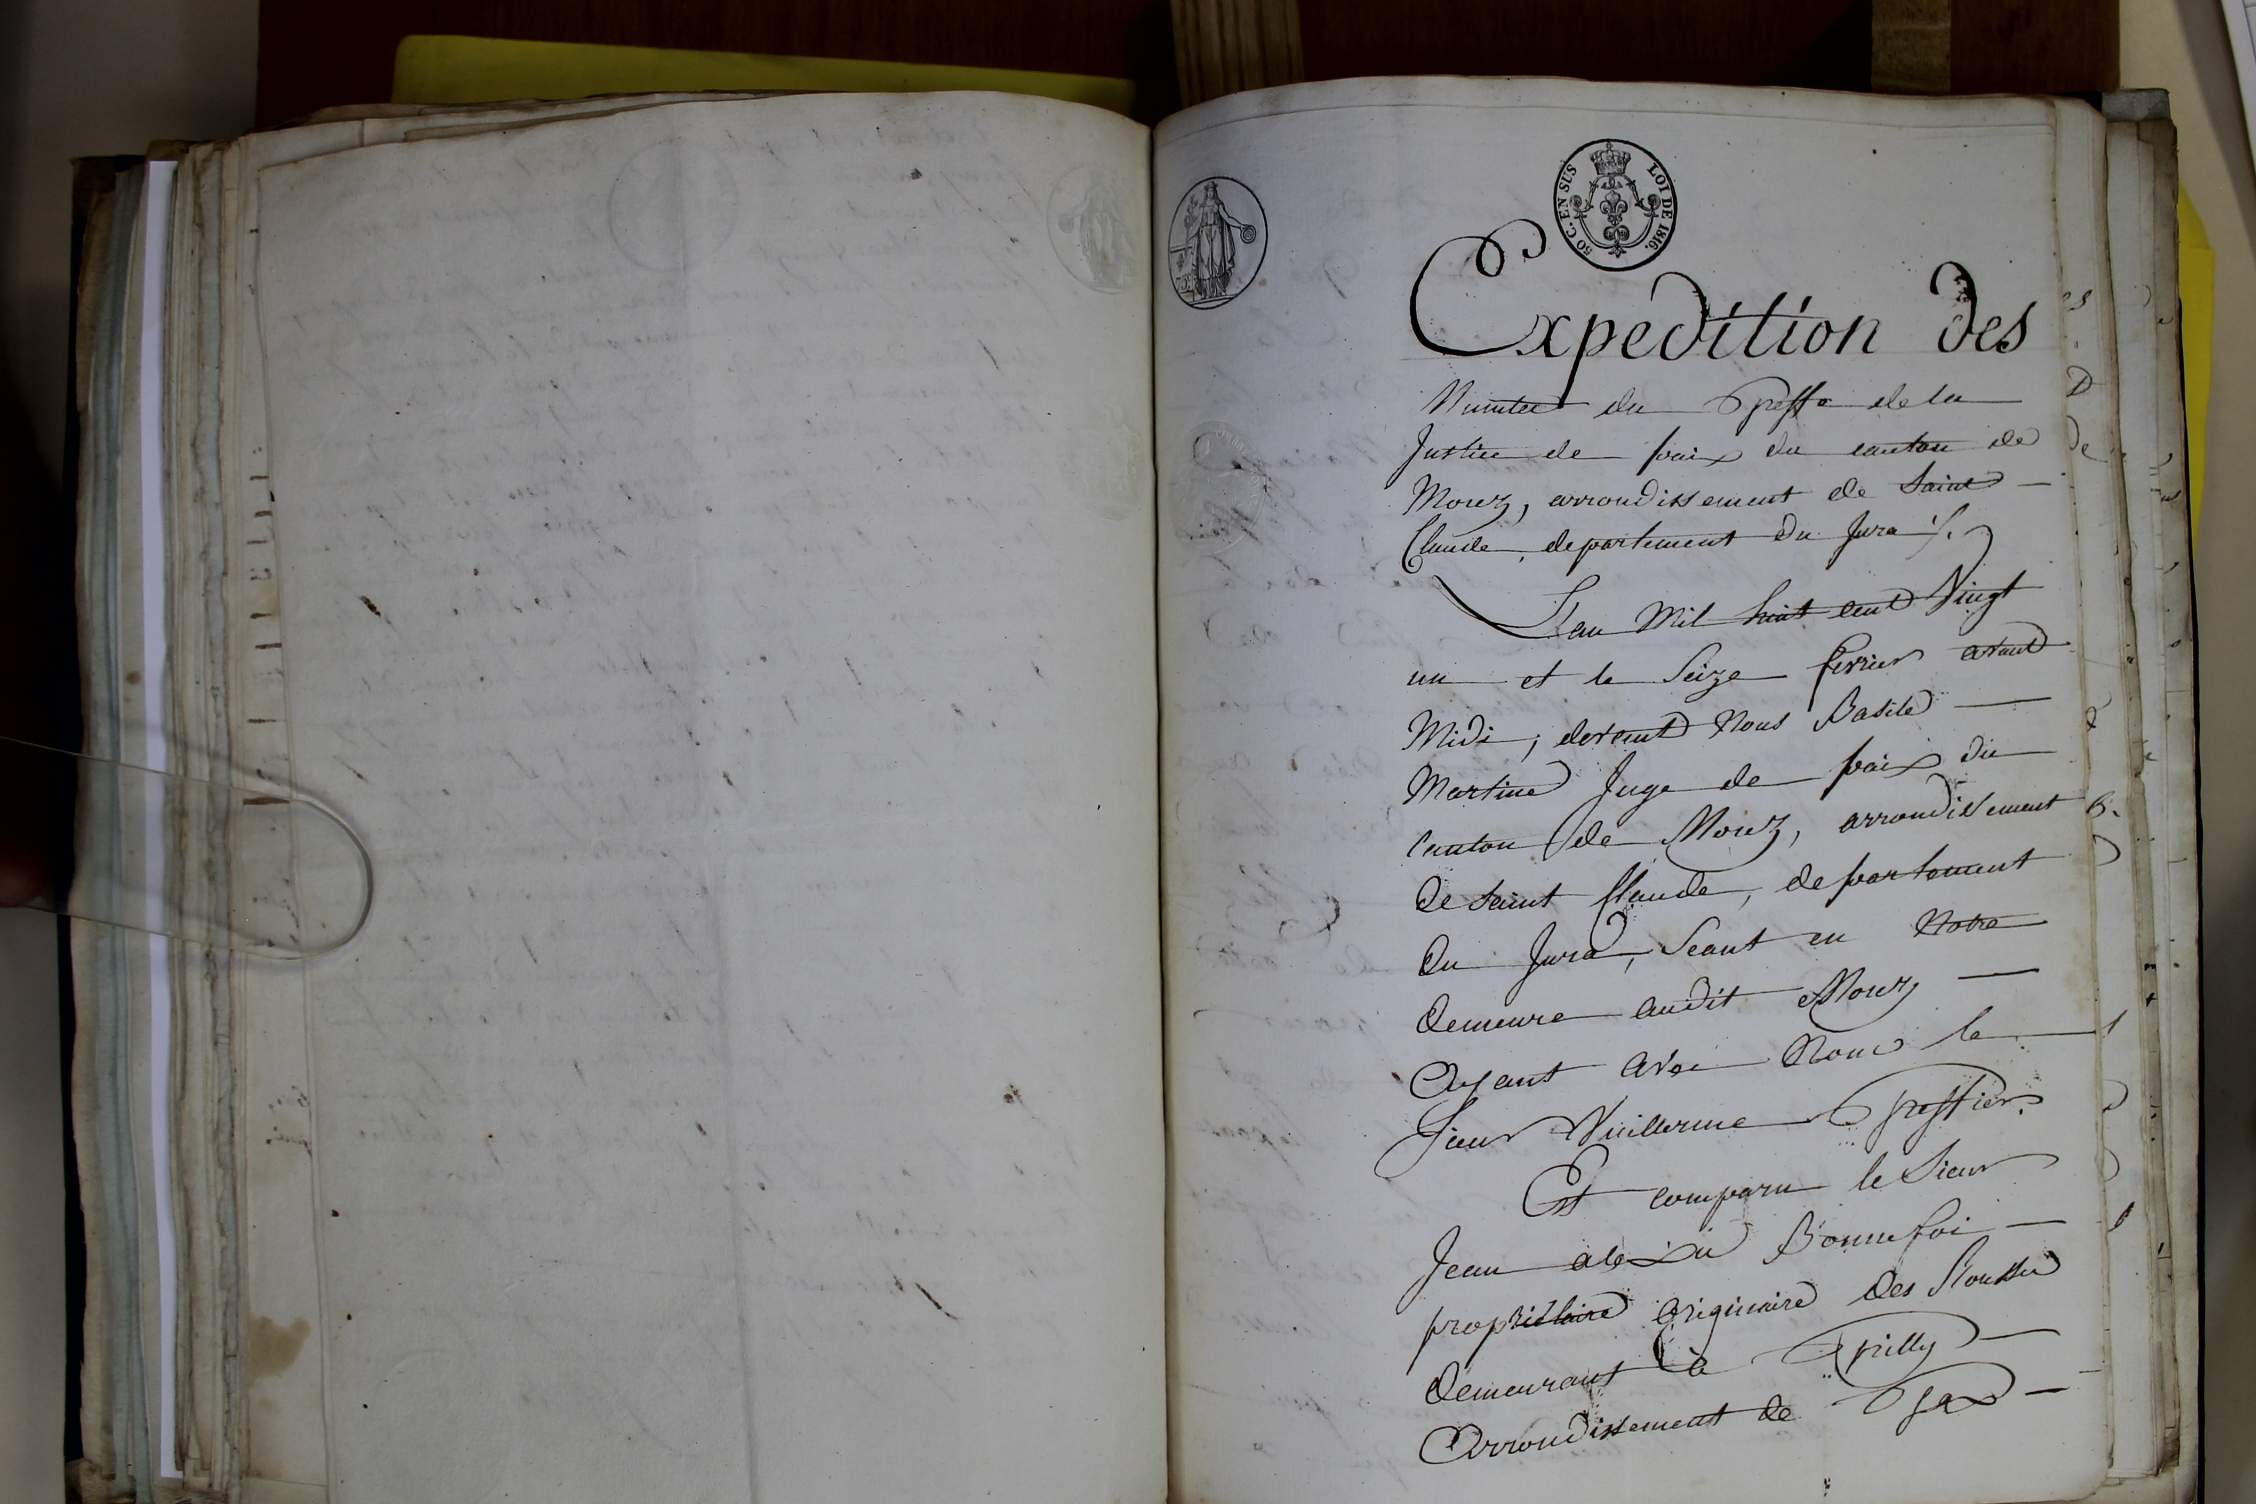 50 C. EN SUS LOI DE 1816.
Expedition des
Minutes du Greffe de la
Justice de paix du canton de
Morez, arrondissement de Saint
Claude, departement du Jura /.
L'an mil huit cent vingt
un et le Seize fevrier avant
Midi, devant Nous Basile
Martine Juge de paix du
canton de Morez, arrondissement
de Saint Claude, departement
du Jura, Seant en Notre
demeure audit Morez
Ayant avec Nous le
Sieur Vuillerme Greffier.
Est comparu le Sieur
Jean alexis Bonnefoi
proprietaire originaire des Rousses
demeurant à Grilly
Arrondissement de Gex